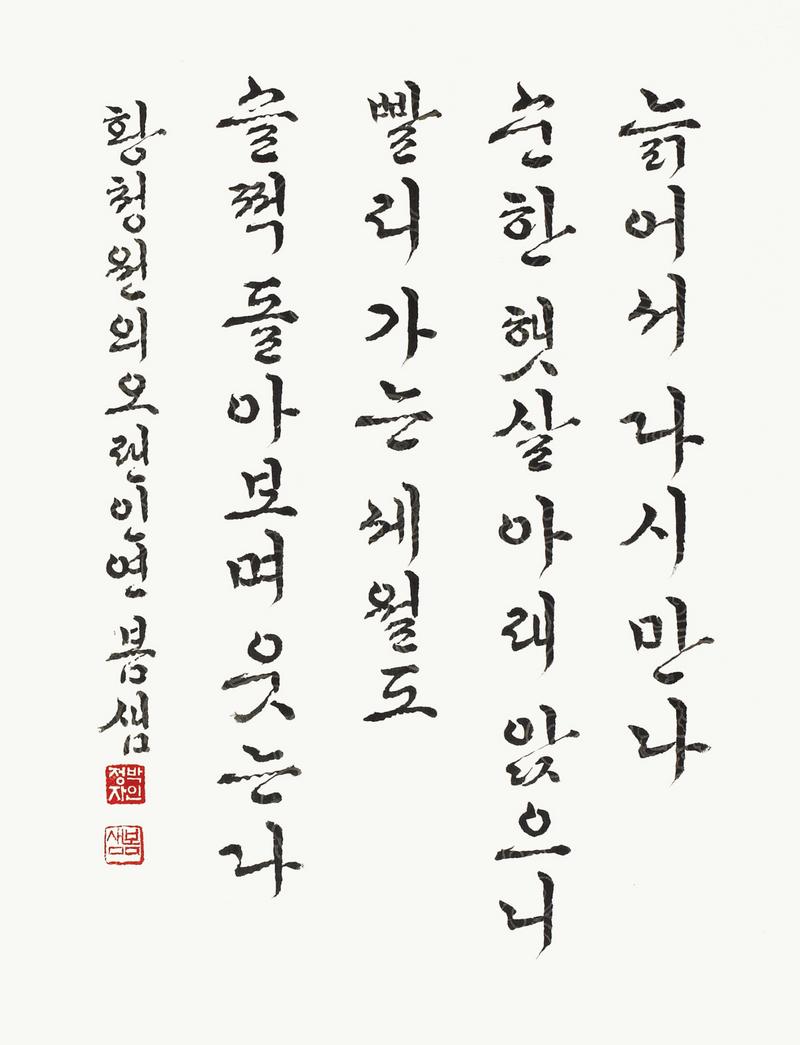 늙어서 다시 만나
순한 햇살 아래 앉으니
빨리 가는 세월도
슬쩍 돌아보며 웃는다
황청원의 오랜 인연 봄샘
박정자인
봄샘